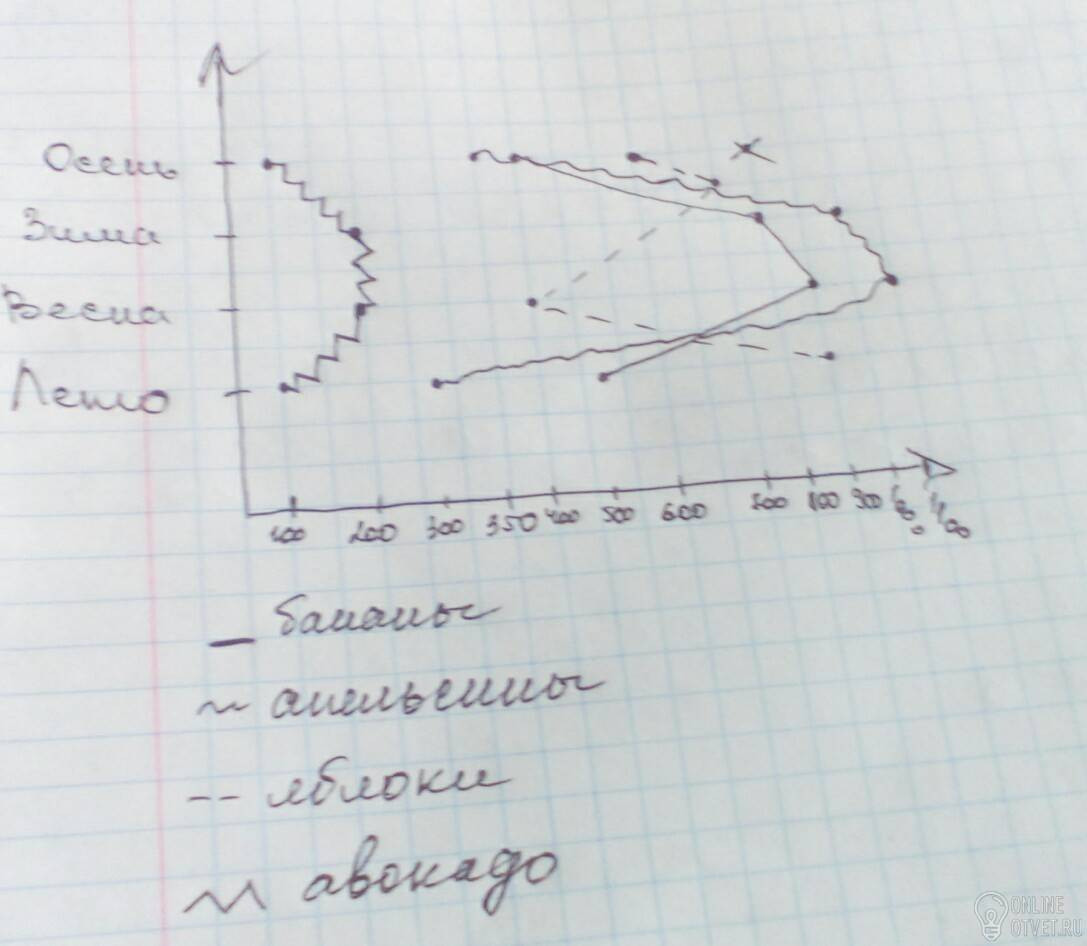 Осень
Зима
Весна
Лето
100 200 300 350 400 500 600
бананы
апельсины
-- яблоки
авокадо
ONLINE
OTVET.RU